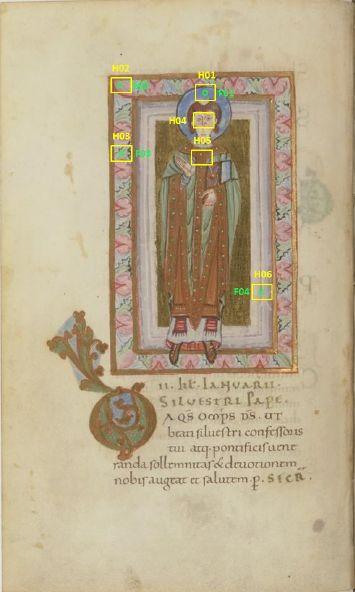 H01
F01
H02
H04
H03
F03
H05
H06
F04
II. kł. IANVARII.
SILVESTRI PAPE.
A Q̄S OM̄PS D̄S. UT
beati silvestri confessoris
tui atq. pontificis uene
randa sollemnitas & deuotionem
nobis augeat et salutem. p. SECR.